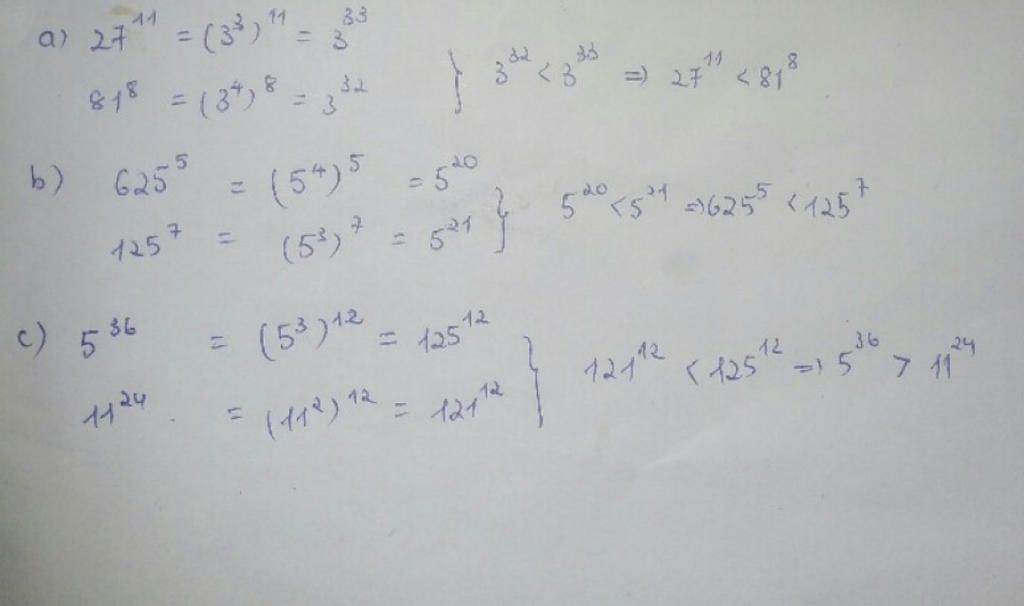 a) 27^11 = (3^3)^11 = 3^33
81^8 = (3^4)^8 = 3^32 } 3^32 < 3^33 => 27^11 < 81^8
b) 625^5 = (5^4)^5 = 5^20
125^7 = (5^3)^7 = 5^21 } 5^20 < 5^21 => 625^5 < 125^7
c) 5^36 = (5^3)^12 = 125^12
11^24 = (11^2)^12 = 121^12 } 121^12 < 125^12 => 5^36 > 11^24